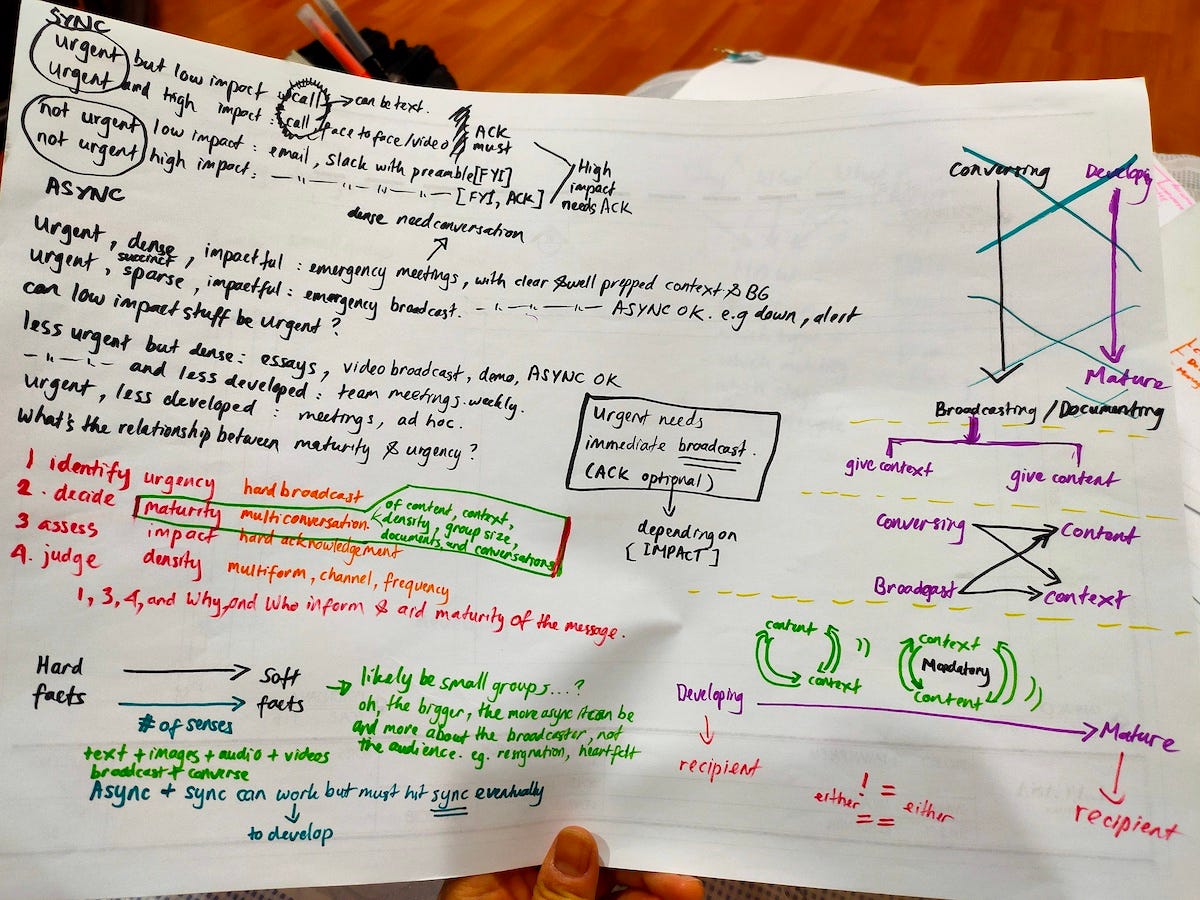 SYNC
urgent but low impact : call → can be text.
urgent and high impact : call, face to face/video
ACK must
not urgent low impact : email, slack with preamble [FYI]
not urgent high impact : —"— "— "— "— [FYI, ACK]
High impact needs ACK
ASYNC
dense need conversation
Urgent, dense, impactful : emergency meetings, with clear & well prepped context & BG
succinct
urgent, sparse, impactful : emergency broadcast. —"—"—"— ASYNC OK. e.g down, alert
can low impact stuff be urgent?
less urgent but dense : essays, video broadcast, demo, ASYNC OK
—"—"— and less developed : team meetings. weekly.
urgent, less developed : meetings, ad hoc.
What's the relationship between maturity & urgency?
Urgent needs
immediate broadcast.
(ACK optional)
depending on
[IMPACT]
1 identify urgency hard broadcast
2. decide maturity multi conversation.
3 assess impact hard acknowledgement
4. judge density multiform, channel, frequency
of content, context,
density, group size,
documents, and conversations
1, 3, 4, and Why, and Who inform & aid maturity of the message.
Hard facts → soft facts
# of senses
text + images + audio + videos
broadcast + converse
→ likely be small groups...?
oh, the bigger, the more async it can be
and more about the broadcaster, not
the audience. eg. resignation, heartfelt
Async + sync can work but must hit sync eventually
to develop
Conversing Developing
Mature
Broadcasting / Documenting
give context give content
Conversing Content
Broadcast Context
content
context
context
Mandatory
content
Developing → Mature
recipient
! =
either either
= =
recipient